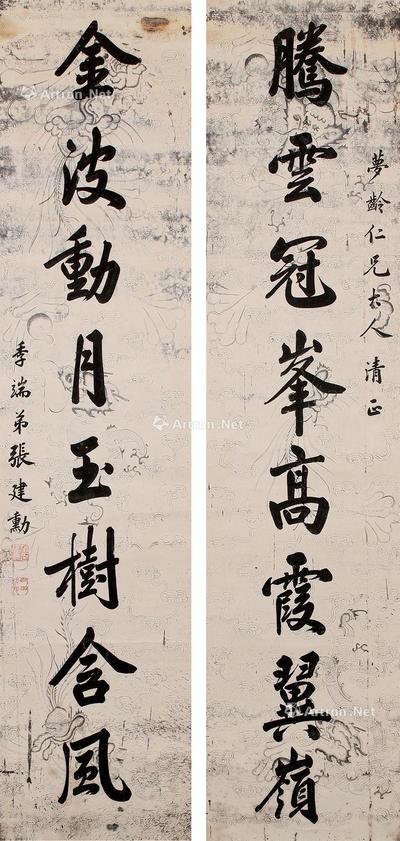 騰雲冠峯高霞翼嶺
夢齡仁兄大人清正
金波動月玉樹含風
季端弟張建勳
Artron.Net
Artron.Net
Artron.Net
Artron.Net
Artron.Net